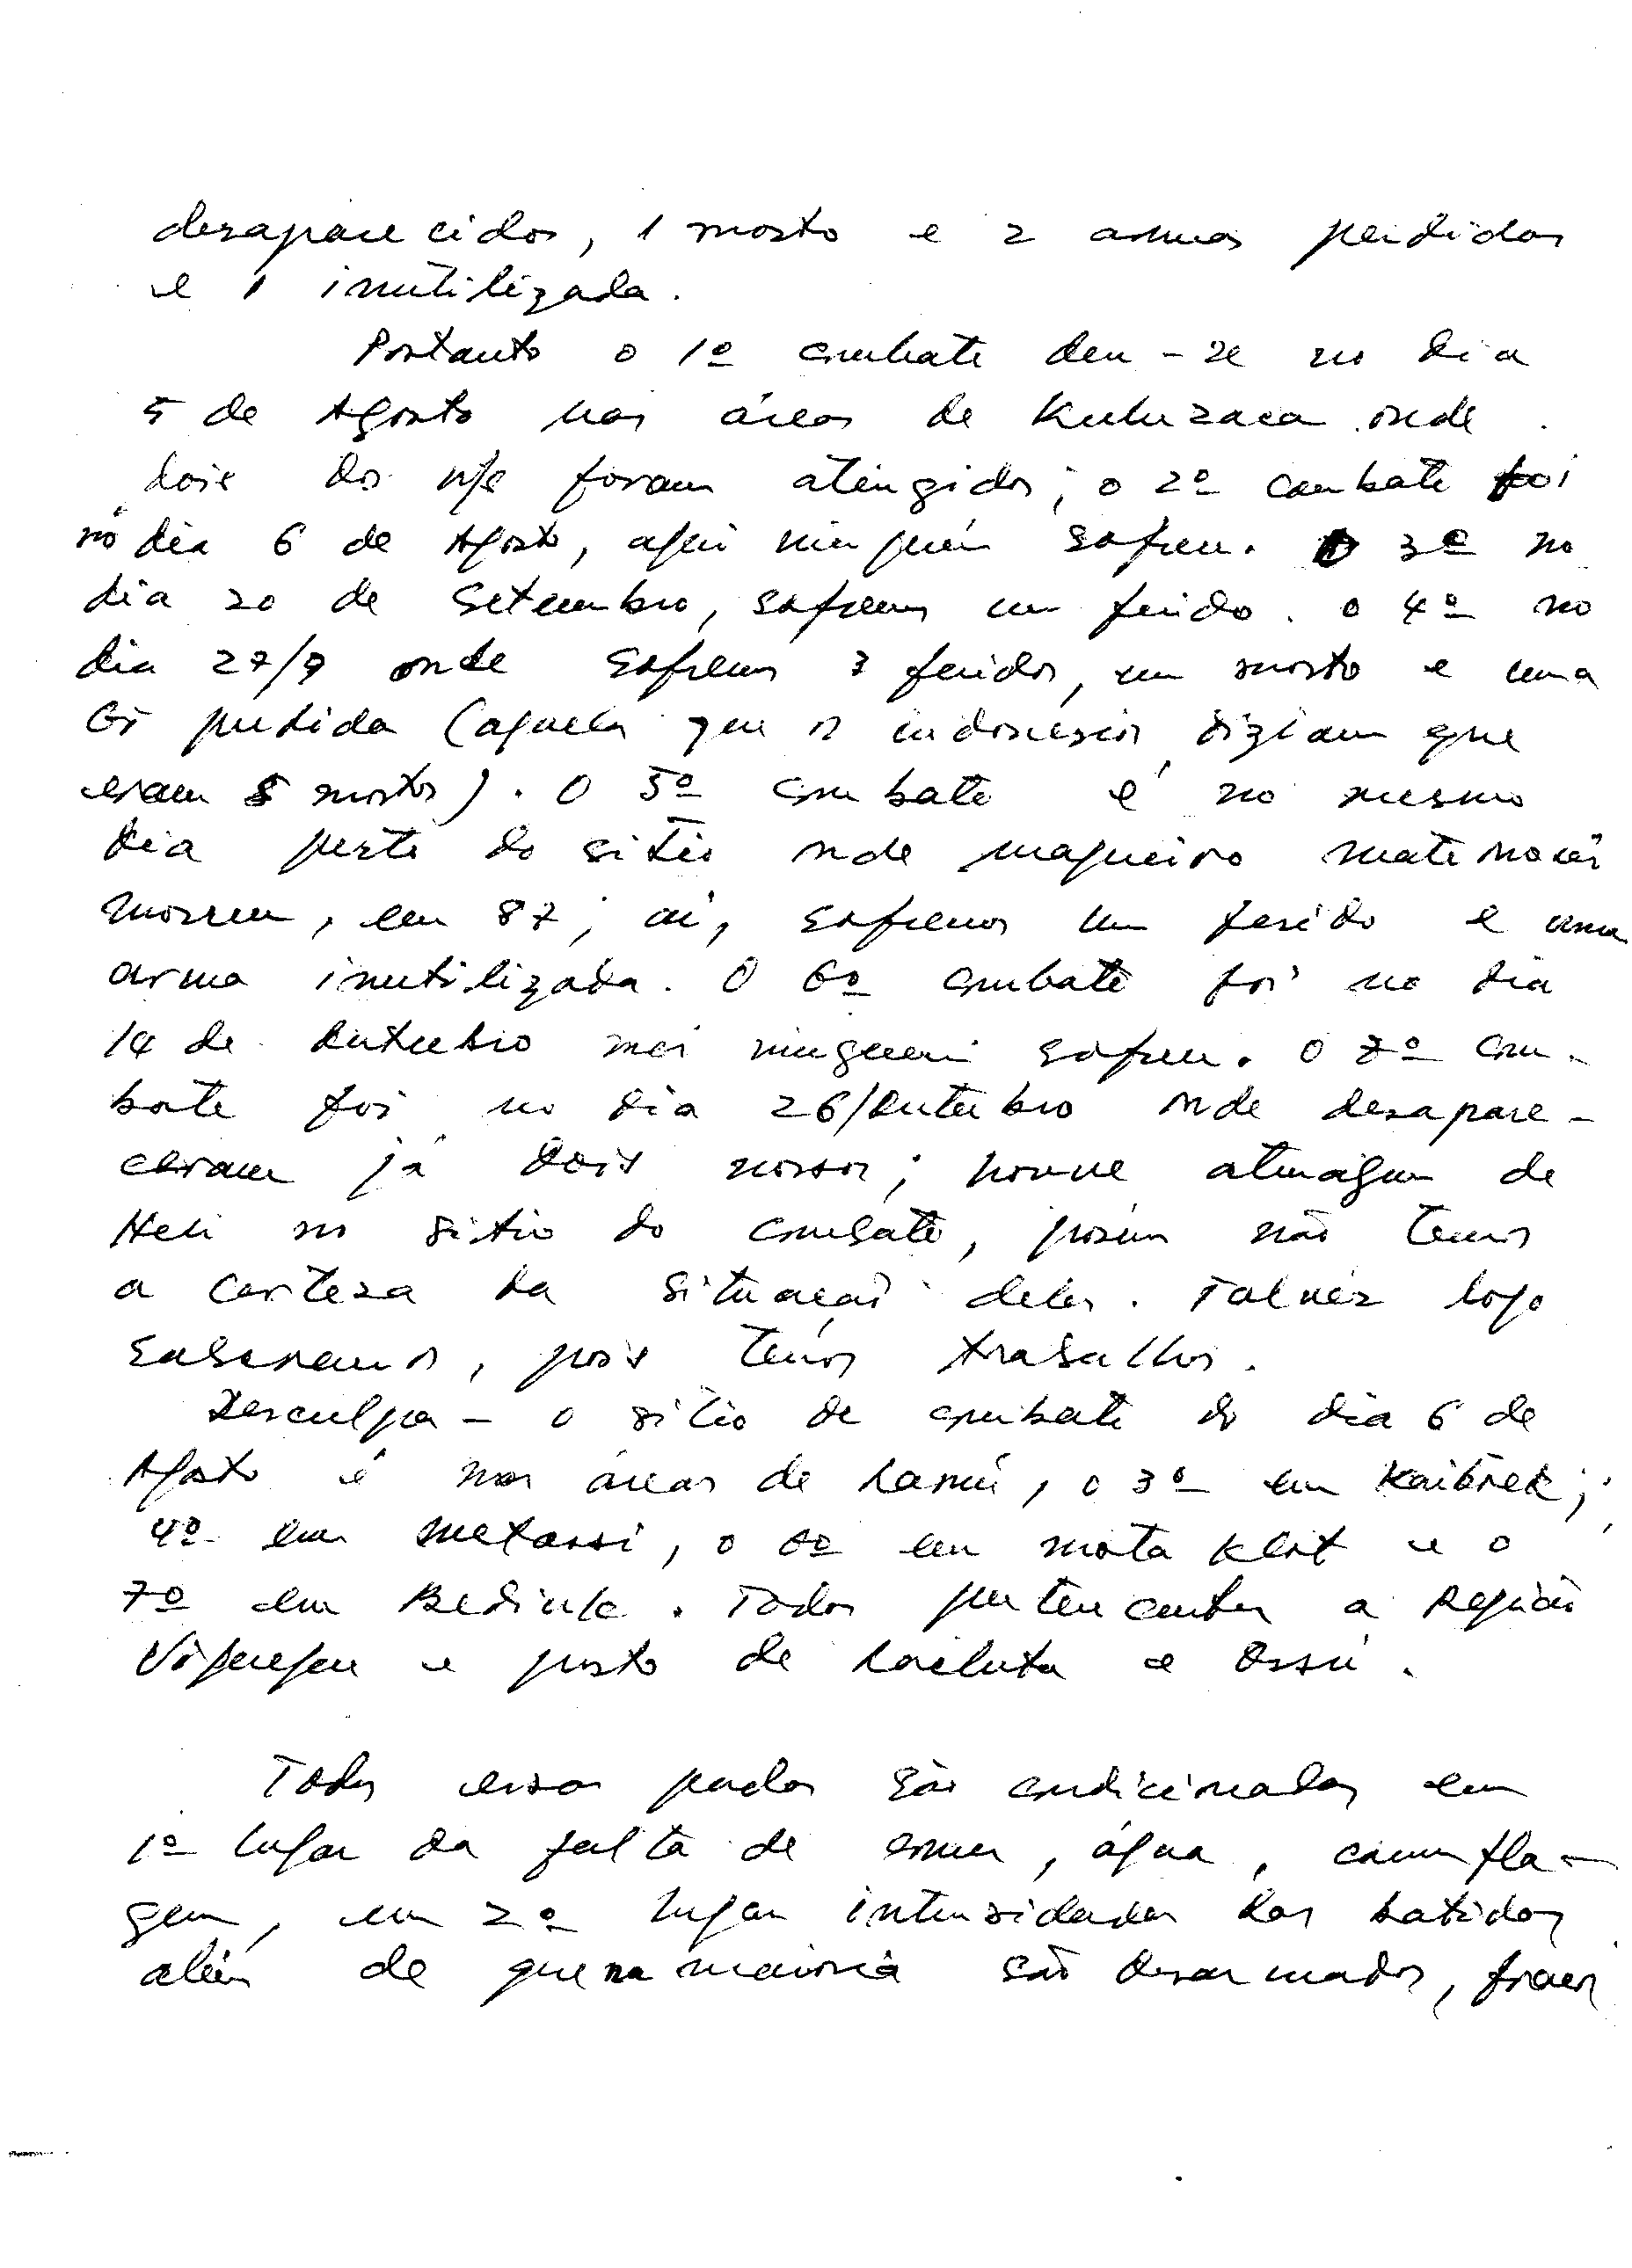 desaparecidos, 1 morto e 2 armas perdidas
e 1 inutilizada.
Portanto o 1º combate deu-se no dia
5 de Agosto nas áreas de onde
dois dos n/s foram atingidos; o 2º combate foi
no dia 6 de Agosto, aqui ninguém sofreu. O 3º no
dia 20 de Setembro, sofremos um ferido. o 4º no
dia 27/9 onde sofremos 3 feridos, um morto e uma
G3 perdida (aquela que os indonésios diziam que
eram 8 mortos). O 5º combate é no mesmo
dia perto do sítio onde maqueiro
morreu, em 87; aí, sofremos um ferido e uma
arma inutilizada. O 6º combate foi no dia
14 de Outubro mas ninguém sofreu. O 7º com-
bate foi no dia 26/Outubro onde desapare-
ceram já dois nossos; houve aterragem de
Heli no sítio do combate, porém não temos
a certeza da situação deles. Talvez logo
saberemos, pois temos trabalhos.
Desculpa - o sítio de combate do dia 6 de
Agosto é nas áreas de , o 3º em ;
4º em Metassi, o 6º em mota e o
7º em . Todos pertencentes a Região
Viqueque e posto de Lacluta e Ossú.
Todas essas perdas são condicionadas em
1º lugar da falta de comer, água, camufla-
gem, em 2º lugar intensidades das batidas
além de que na maioria são desarmados, fracos